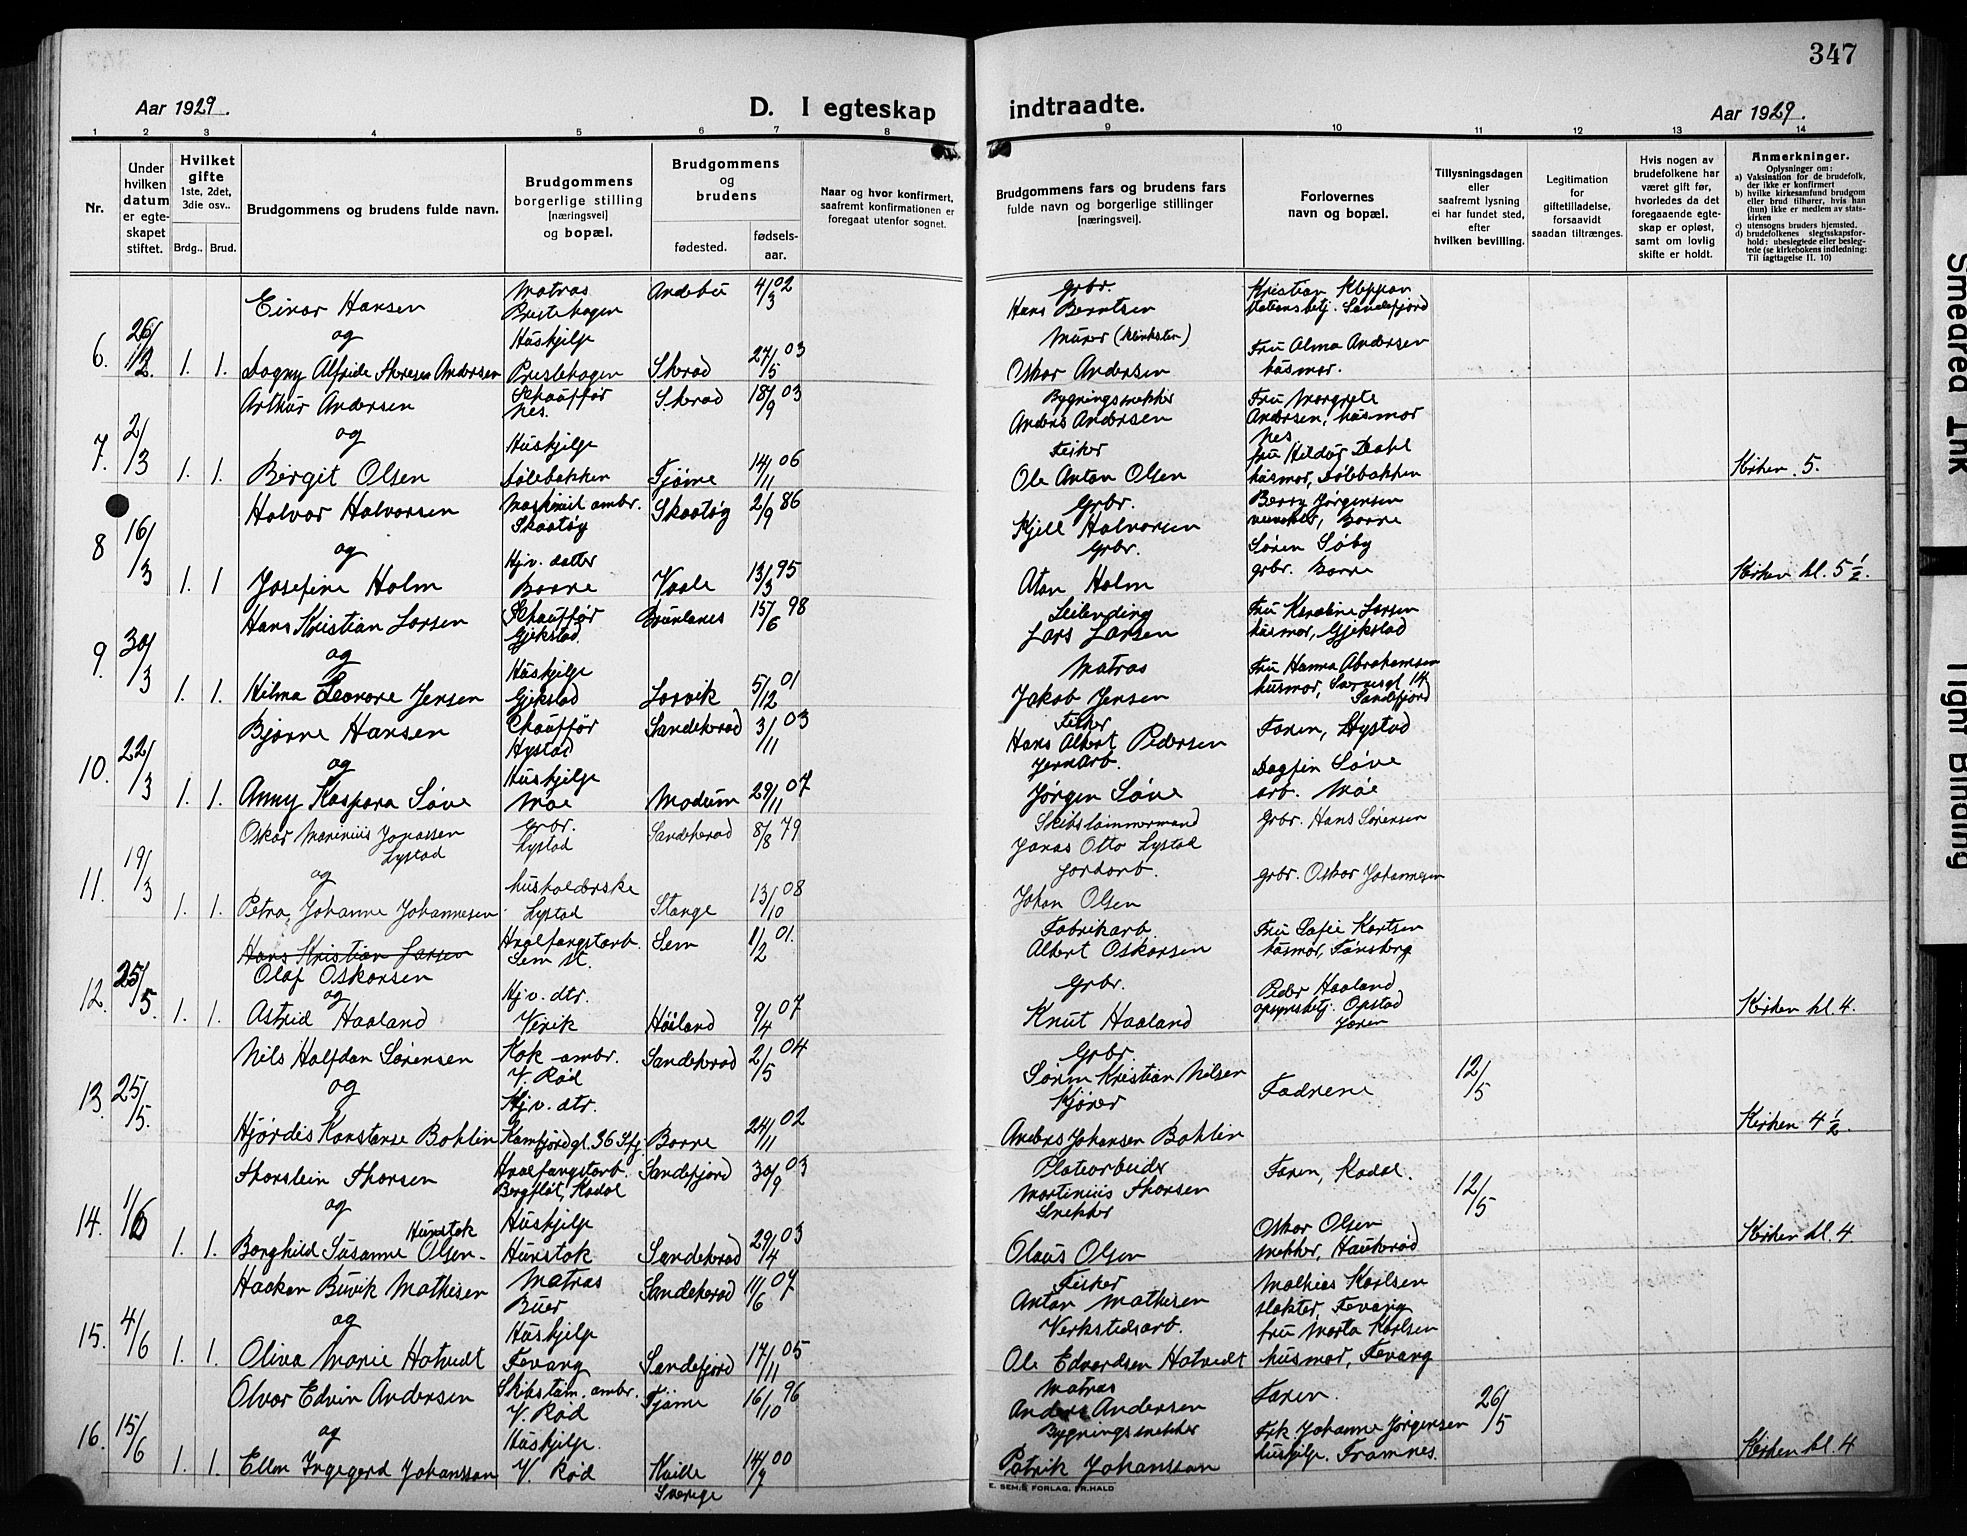 347
Aar 1929.
D. I egteskap
indtraadte.
Aar 1929.
1 2 3 4 5 6 7 8 9 10 11 12 13 14
Nr.
Under hvilken datum er egteskapet stiftet.
Hvilket gifte
1ste, 2det, 3die osv..
Brdg.. Brud.
Brudgommens og brudens fulde navn.
Brudgommens borgerlige stilling [næringsvei] og bopæl.
Brudgommens og brudens
fødested.
fødselsaar.
Naar og hvor konfirmert, saafremt konfirmationen er foregaat utenfor sognet.
Brudgommens fars og brudens fars fulde navn og borgerlige stillinger [næringsvei].
Forlovernes navn og bopæl.
Tillysningsdagen eller saafremt lysning ei har fundet sted, efter hvilken bevilling.
Legitimation for giftetilladelse, forsaavidt saadan tiltrænges.
Hvis nogen av brudefolkene har været gift før, hvorledes da det foregaaende egteskap er opløst, samt om lovlig skifte er holdt.
Anmerkninger.
Oplysninger om:
a) Vaksination for de brudefolk, der ikke er konfirmert
b) hvilke kirkesamfund brudgom eller brud tilhører, hvis han (hun) ikke er medlem av statskirken
c) utensogns bruders hjemsted.
d) brudefolkenes slegtsskapsforhold: ubeslegtede eller beslegtede (se kirkebokens indledning: Til iagttagelse II. 10)
6. 26/12. 1. 1.
Einar Hansen Matros Prestehagen Andebu 4/3 02 Grbr. Hans Berntsen Kristian Sandefjord
og Hushjelp Murer (klinksten) Fru Alma Andersen
Dagny Alfride Theresen Andersen Prestehagen Skerad 27/5 03 Oskar Andersen husmor.
7. 2/3 1. 1.
Arthur Andersen Schauffør Nes. Skerad 18/9 03 Bygningsnekker Anders Andersen Fru Margrete Andersen, husmor Nes
og Hushjelp Fisker fru Hildur Dahl
Birgit Olsen Dølebakken Tjøme 14/11 06 Ole Anton Olsen husmor, Dølebakken Kirken 5.
8 16/3 1. 1
Halvor Halvorsen Maskinist ambr. Skaatøy Skaatøy 2/9 86 Grbr. Kjell Halvorsen Jørgensen Borre
og Hjv. datter Grbr. Søren Søby
Josefine Holm Borre Vaale 13/3 95 Holm grbr. Borre Kirken kl. 5 ½.
9. 30/3 1. 1.
Hans Kristian Larsen Schauffør Gjekstad Brunlanes 15/6 98 Leilending Lars Larsen Fru Karoline Larsen husmor, Gjekstad
og Hushjelp Matros Fru Hanna Abrahamsen
Hilma Leonore Jensen Gjekstad Larvik 5/12 01 Jakob Jensen husmor, 14 Sandefjord
10. 22/3 1. 1.
Bjarne Hansen Chauffør Hystad Sandeherad 3/11 03 Fisker Hans Albert Pedersen Faren, Hystad
og Hushjelp Jernarb. Dagfin Søve
Anny Kaspara Søve Moe Modum 29/11 07 Jørgen Søve arb. Moe
11. 19/3 1. 1.
Oskar Marinius Jonassen Lystad Grbr. Lystad Sandeherad 8/8 79 Skibstømmermand Jonas Otto Lystad Grbr. Hans Sørensen
og husholderske Jordarb. grbr. Oskar Johannesen
Petra Johanne Johannesen Lystad Stange 13/10 08 Johan Olsen
12. 25/5. 1. 1.
Hans Kristian Larsen
Olaf Oskarsen Hvalfangstarb. Sem st. Sem 1/2 01. Fabrikarb. Albert Oskarsen Fru Sofie Karlsen husmor, Tønsberg
og Hjv. dtr. Grbr. Peder Haaland
Astrid Haaland Virik Høiland 9/4 07 Knut Haaland opsynsbetj. Opstad Jæren Kirken kl. 4.
13. 25/5.
Nils Halfdan Sørensen Kok ambr. V. Rød Sandeherad 2/5 04 Grbr. Søren Kristian Nilsen Fadrene 12/5
og Hjv. dtr. Kjører
Hjørdis Konstanse Bohlin Kamfjordgt. 36 Sfj. Borre 24/11 02 Anders Johansen Bohlin Kirken 4 ½.
14. 1/6 1. 1.
Thorstein Thorsen Hvalfangstarb. Kodal Sandefjord 30/9 03 Platearbeider Martinius Thorsen Faren, Kodal. 12/5
og Hushjelp Snekker Oskar Olsen
Borghild Susanne Olsen Hunstok Hunstok Sandeherad 29/4 03 Olaus Olsen snekker, Haukerød Kirken kl. 4.
15. 4/6 1. 1.
Haaken Buvik Mathisen Matros Buer Sandeherad 11/6 07 Fisker Anton Mathisen Mathias Karlsen slakter, Fevang
og Hushjelp Verkstedsarb. fru Marta Karlsen
Oliva Marie Hotvedt Fevang Sandefjord 17/11 05 Ole Edvardsen Hotvedt husmor, Fevang
16. 15/6 1. 1.
Olvar Edvin Andersen Skibstøm. ambr. V. Rød Tjøme 16/10 96 Matros Anders Andersen Faren. 26/5
og Hushjelp. Bygningsnekker Frk. Johanne Jørgensen
Ellen Ingegerd Johansson V. Rød Kville Sverige 14/9 00 Patrik Johansson hushjelp. Framnes. Kirken kl. 4
E. SEM.S FORLAG. FR.HALD
Smeared Ink
Tight Binding